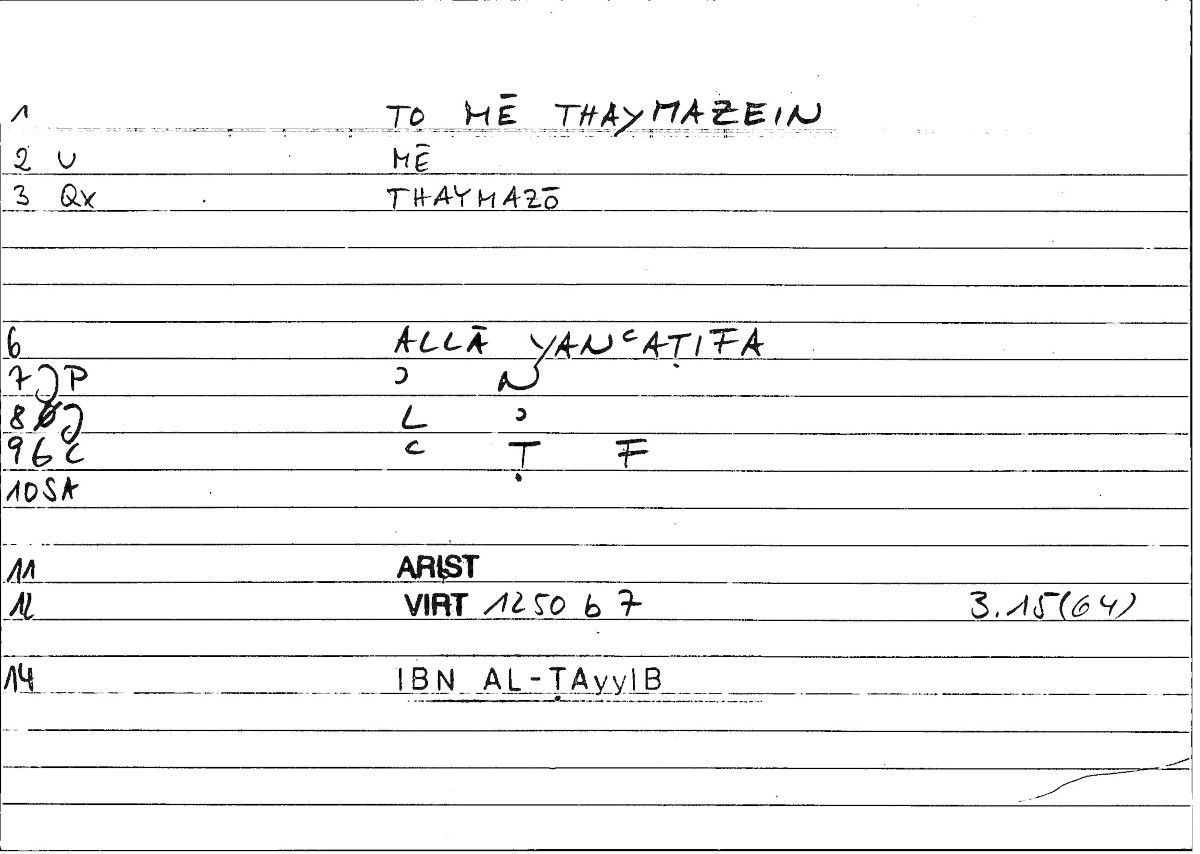 1 TO MĒ THAYMAZEIN
2 U MĒ
3 Qx THAYMAZŌ
6 ALLĀ YANᶜAṬIFA
7 P ͻ N
8 L ͻ
9 6 C ᶜ Ṭ F
10 SA
11 ARIST
12 VIRT 1250 b 7 3.15(64)
14 IBN AL-ṬAyyIB